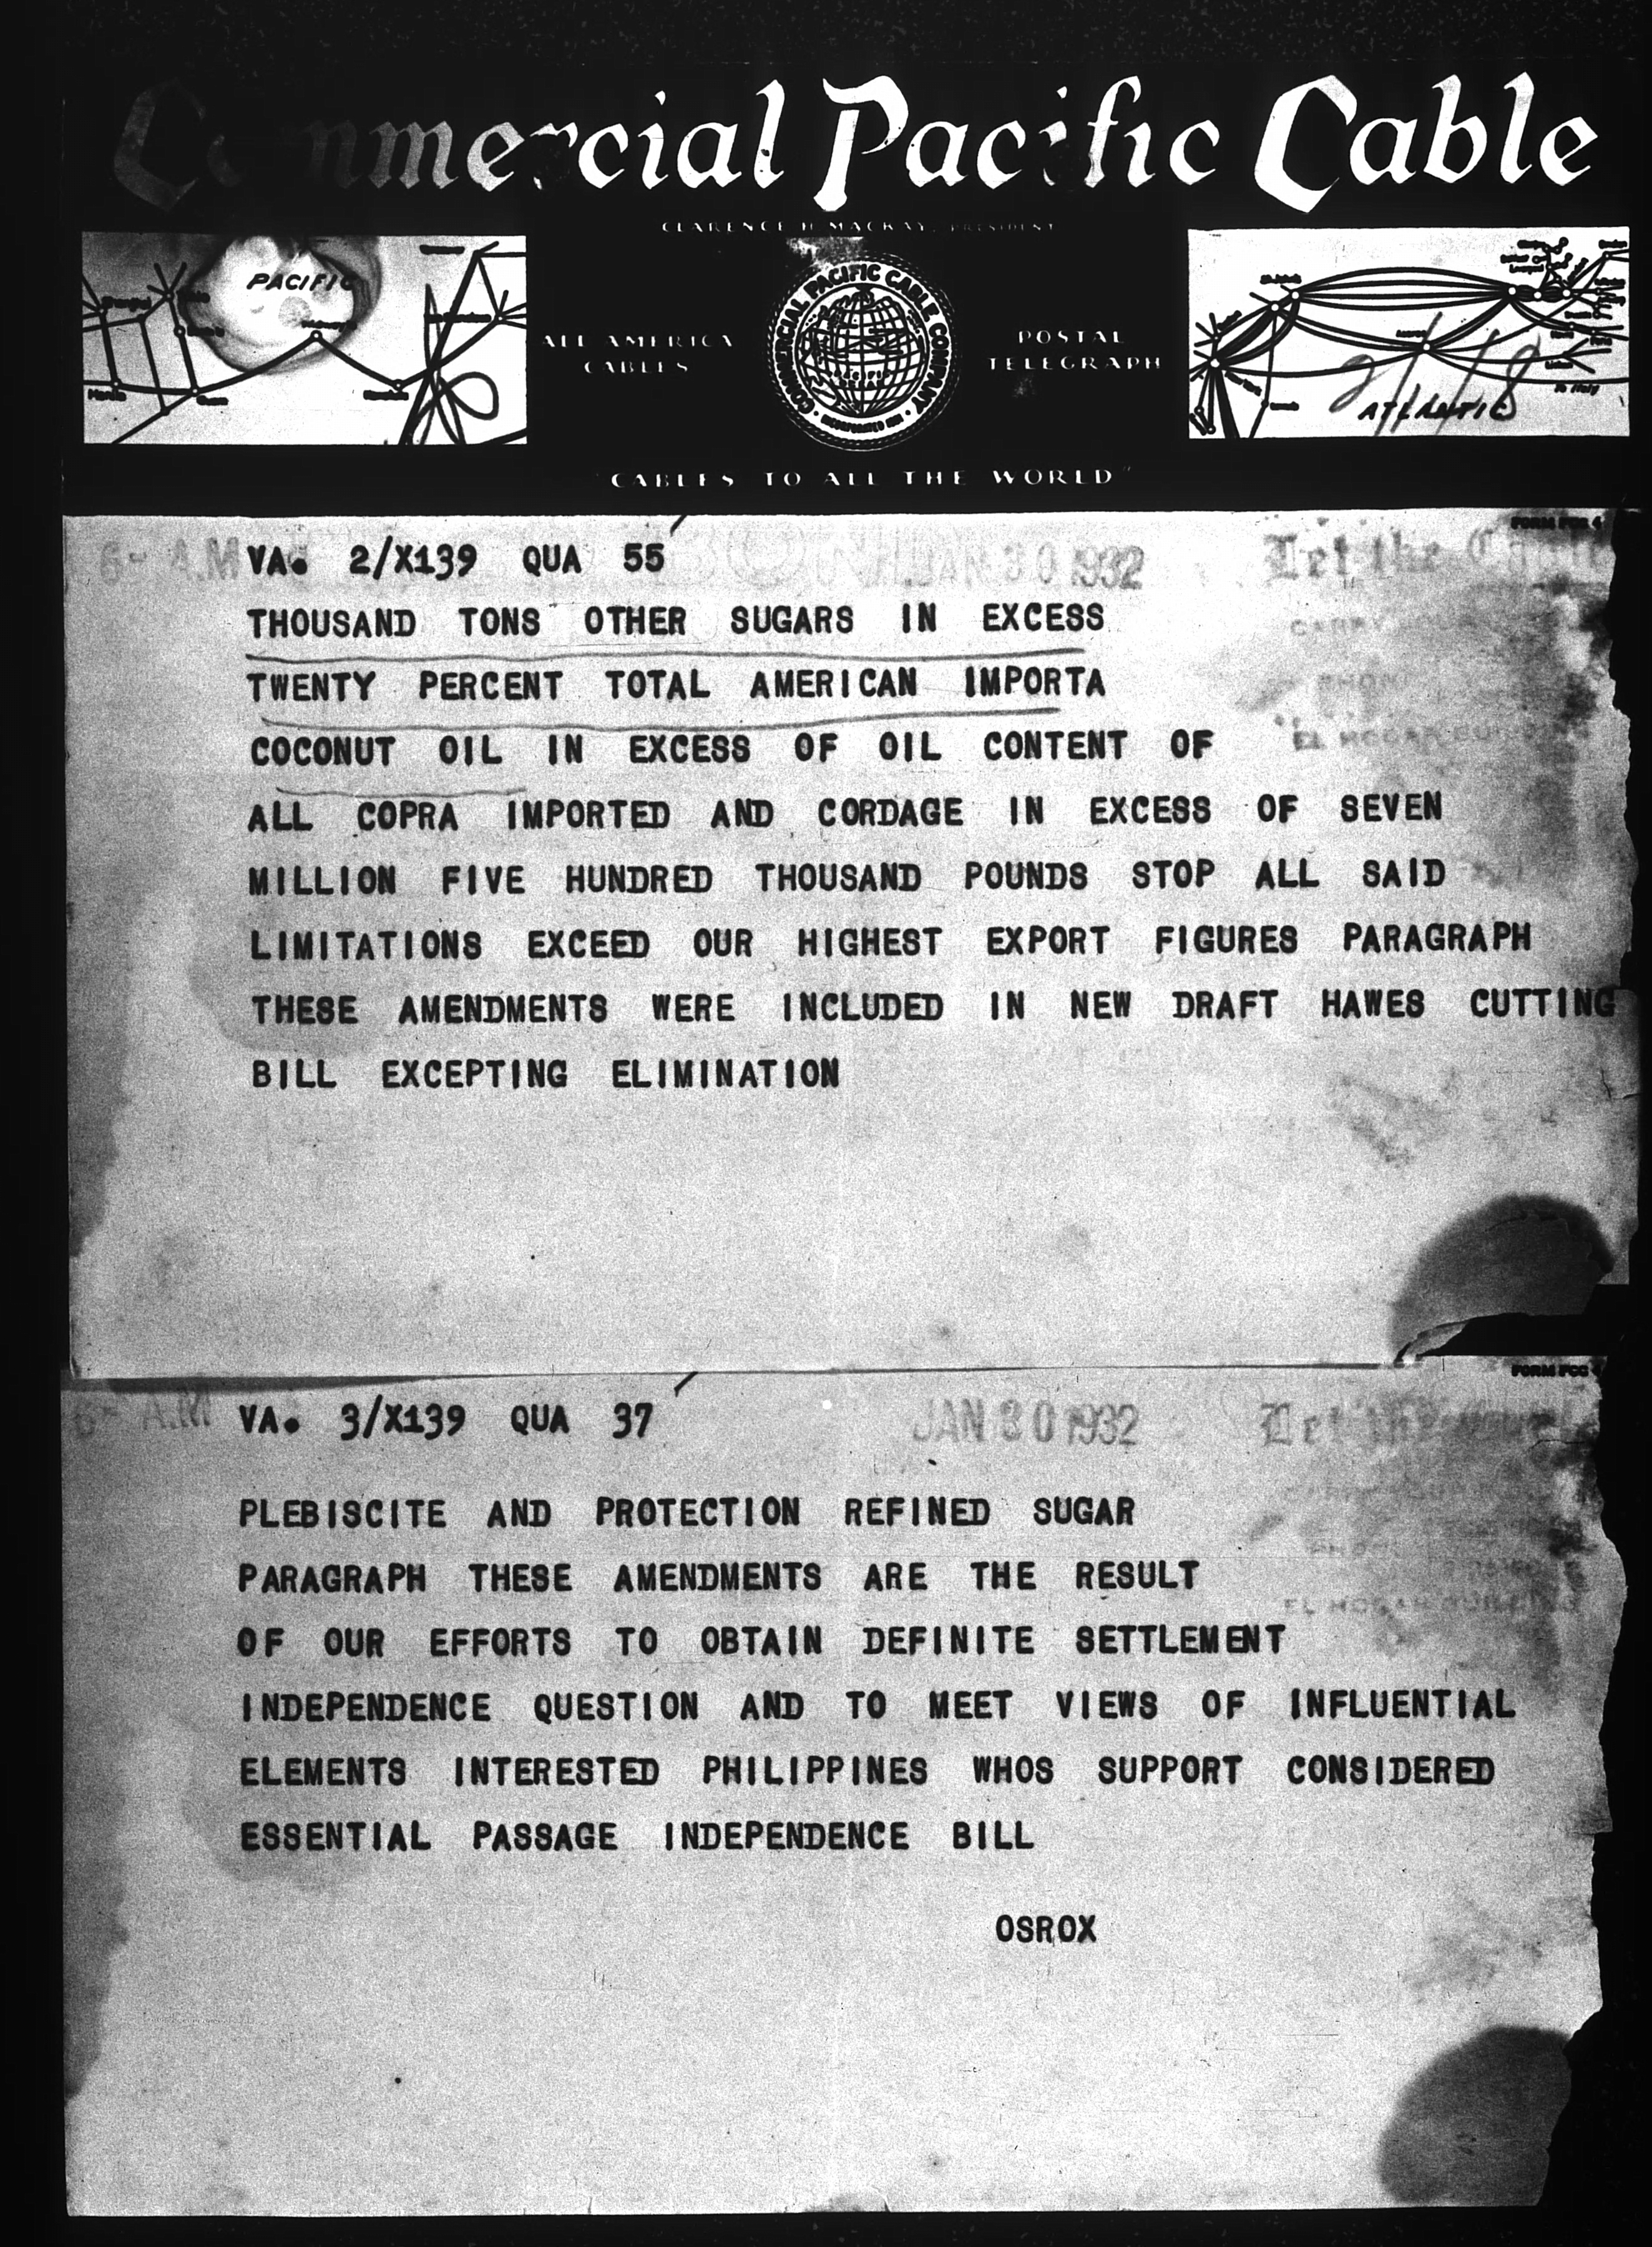 Commercial Pacific Cable
CLARENCE H. MACKAY, PRESIDENT
PACIFIC
ALL AMERICA
CABLES
COMMERCIAL PACIFIC CABLE COMPANY
POSTAL
TELEGRAPH
ATLANTIC
To Italy
"CABLES TO ALL THE WORLD"
6- A.M VA. 2/X139 QUA 55 JAN 30 1932 Let the
THOUSAND TONS OTHER SUGARS IN EXCESS
TWENTY PERCENT TOTAL AMERICAN IMPORTA
COCONUT OIL IN EXCESS OF OIL CONTENT OF
EL HOGAR BUILDING
ALL COPRA IMPORTED AND CORDAGE IN EXCESS OF SEVEN
MILLION FIVE HUNDRED THOUSAND POUNDS STOP ALL SAID
LIMITATIONS EXCEED OUR HIGHEST EXPORT FIGURES PARAGRAPH
THESE AMENDMENTS WERE INCLUDED IN NEW DRAFT HAWES CUTTING
BILL EXCEPTING ELIMINATION
6- A.M VA. 3/X139 QUA 37 JAN 30 1932 Let the
PLEBISCITE AND PROTECTION REFINED SUGAR
PARAGRAPH THESE AMENDMENTS ARE THE RESULT
EL HOGAR BUILDING
OF OUR EFFORTS TO OBTAIN DEFINITE SETTLEMENT
INDEPENDENCE QUESTION AND TO MEET VIEWS OF INFLUENTIAL
ELEMENTS INTERESTED PHILIPPINES WHOS SUPPORT CONSIDERED
ESSENTIAL PASSAGE INDEPENDENCE BILL
OSROX